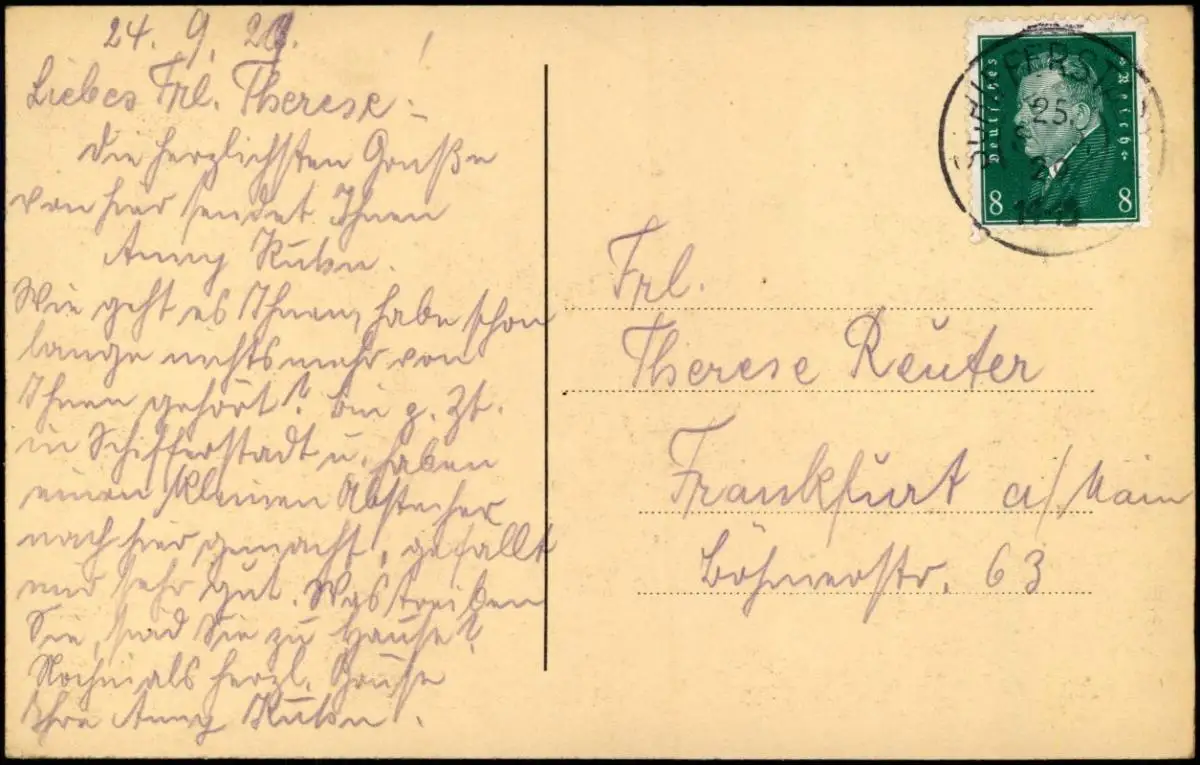 24. 9. 29.
Liebes Frl. Therese!
Die herzlichsten Grüße
von hier sendet Ihnen
Anny
Wie geht es Ihnen, habe schon
lange nichts mehr von
Ihnen gehört? Bin z. Zt.
in Schifferstadt u. haben
einen kleinen Abstecher
nach hier gemacht, gefällt
mir sehr gut. Was treiben
Sie, sind Sie zu Hause?
Nochmals herzl. Grüße
Ihre Anny
Frl.
Therese Reuter
Frankfurt a/Main
63
Deutsches Reich
8 8
SCHIFFERSTADT
25.